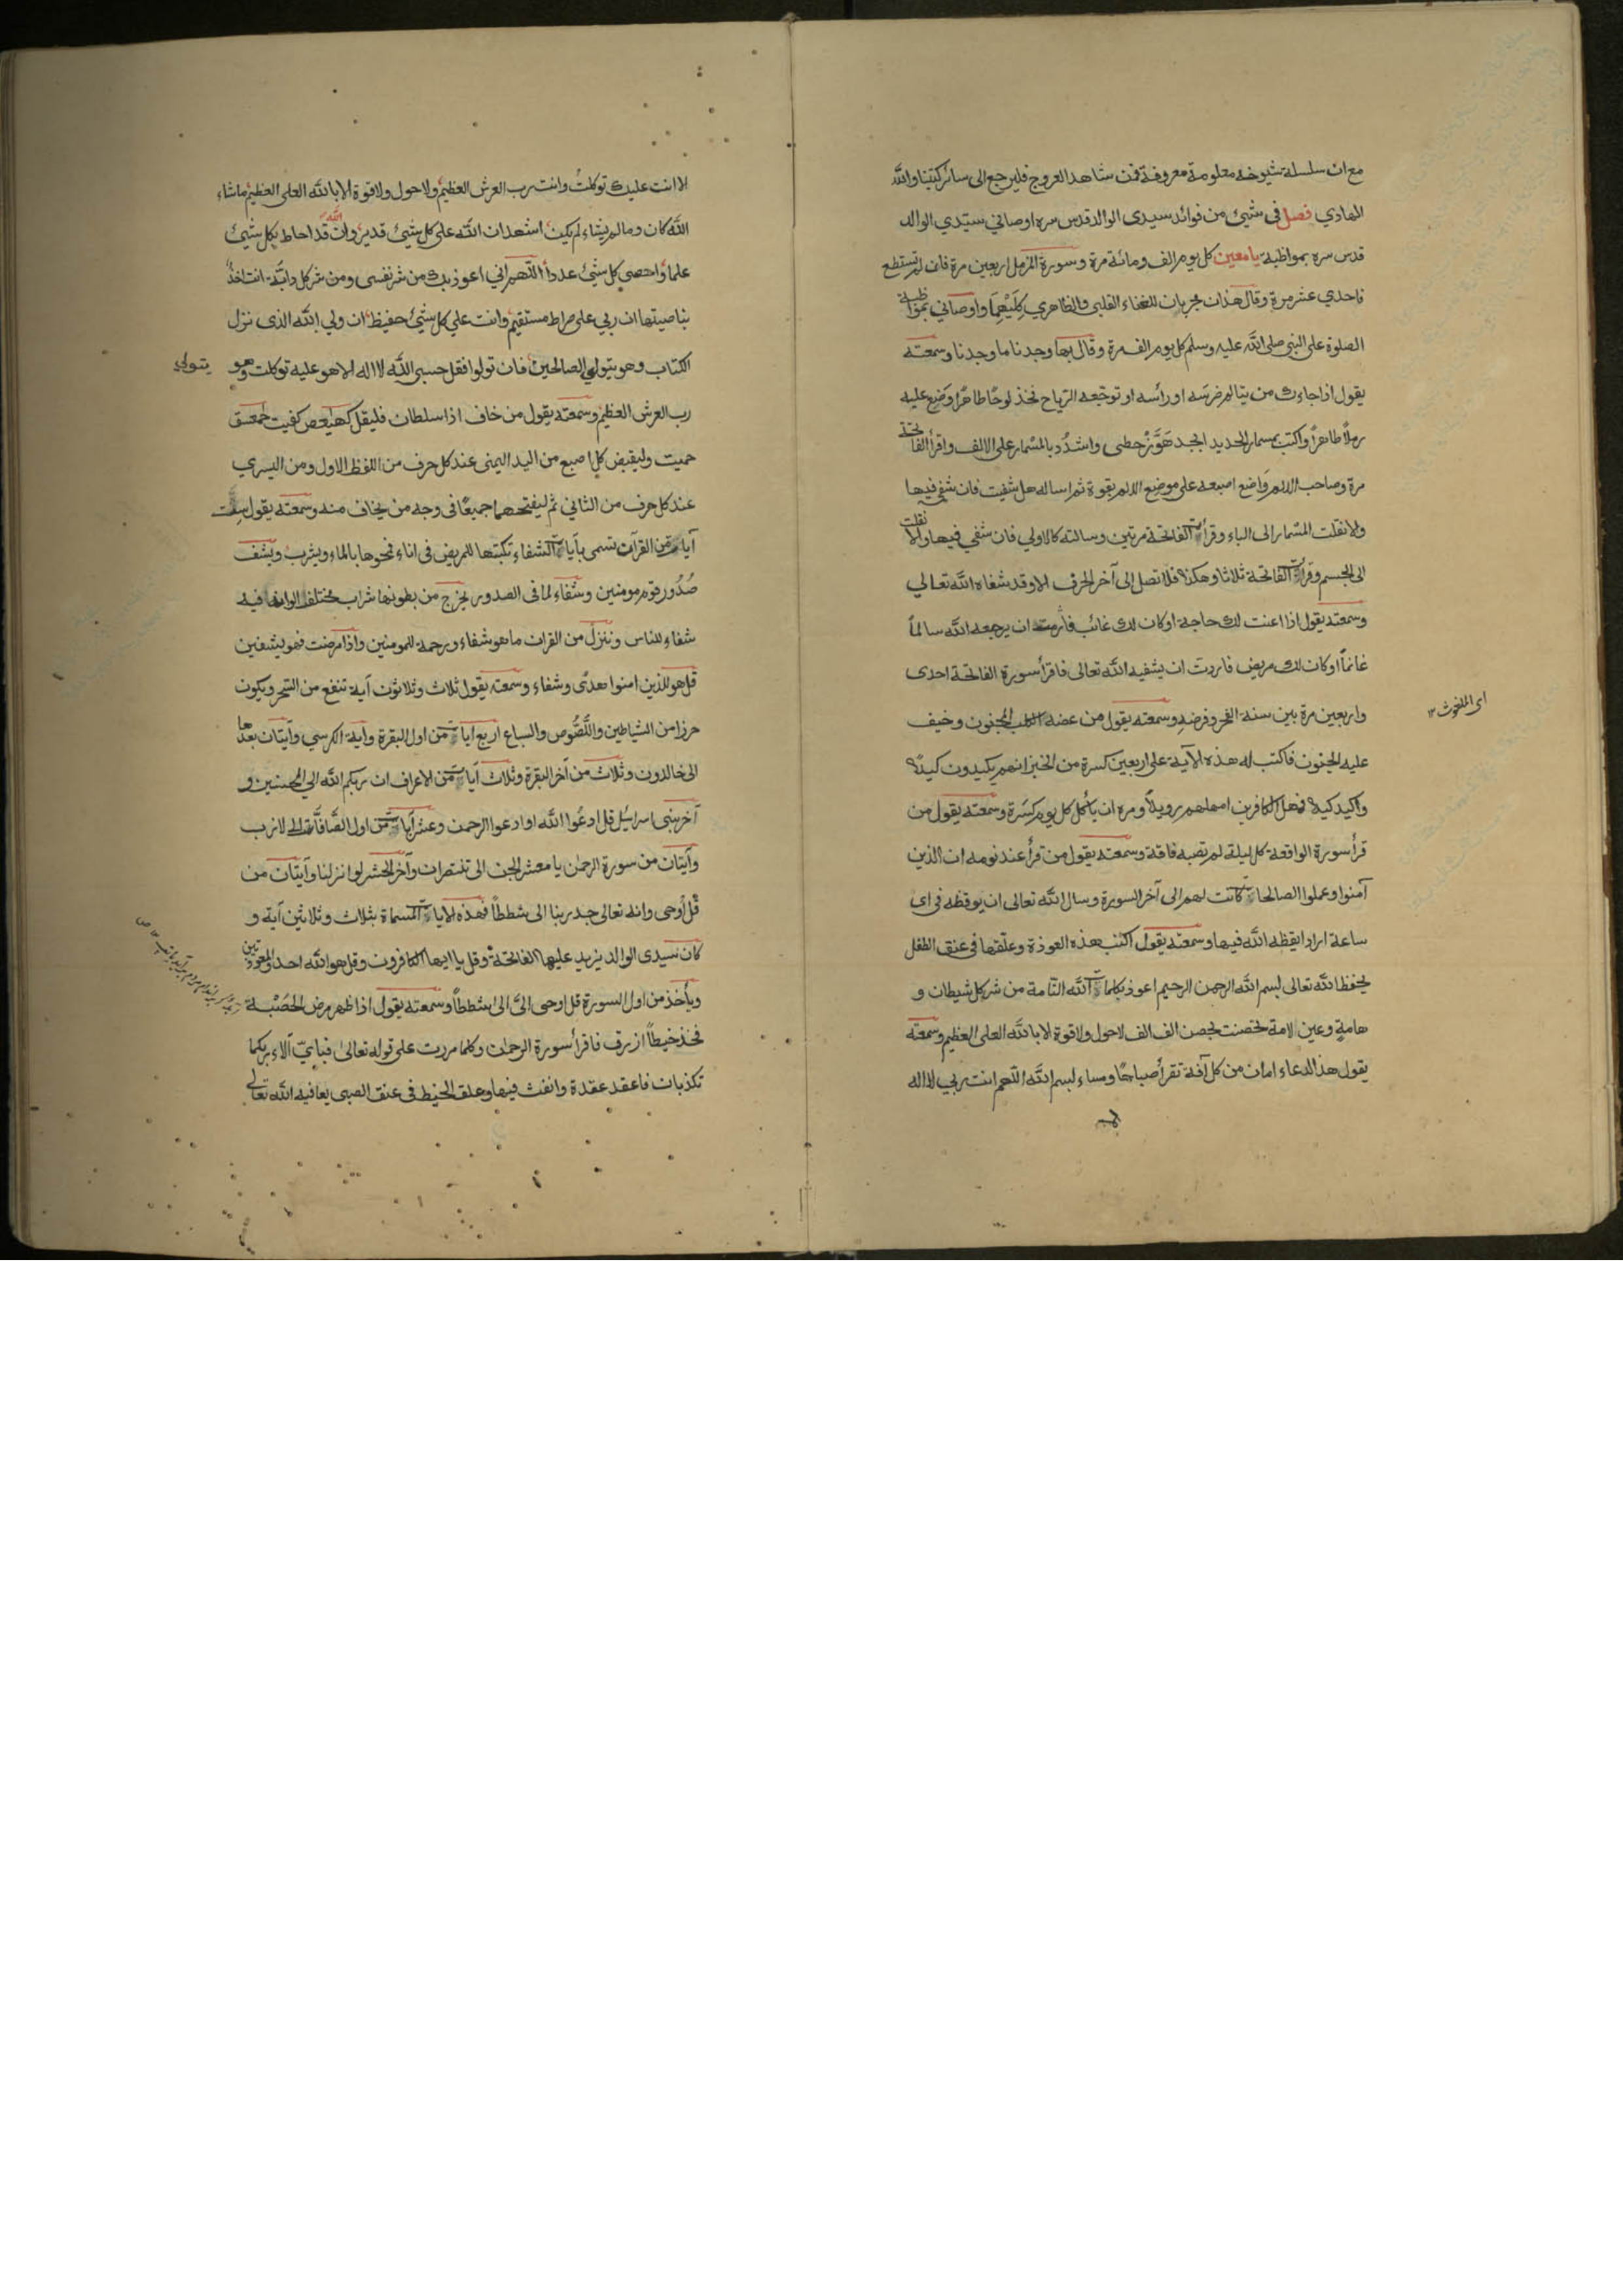 مع ان سلسلة شيوخه معلومة معروفة فمن شاهد العروج فليرجع الى سائر كتبنا والله
الهادي فصل فى شيئ من فوائد سيدى الوالد قدس سره اوصاني سيدي الوالد
قدس سره بمواظبة يا معين كل يوم الف ومائة مرة وسورة المزمل اربعين مرة فان لم تستطع
فاحدي عشر مرة وقال هذان مجربان للغناء القلبى والظاهري كليهما واوصانى بمواظبة
الصلوة على النبي صلى الله عليه وسلم كل يوم الف مرة وقال بها وجدنا ما وجدنا وسمعته
يقول اذا جاءك من يتالم ضرسه او رأسه او توجعه الرياح فخذ لوحًا طاهرًا وضع عليه
رملاً طاهرًا واكتب بمسمار الحديد ابجد هوّز حطى واشدُد بالمسمار على الالف واقرأ الفاتحة
مرة وصاحب الالم وَاضع اصبعه على موضع الالم بقوة ثم اساله هل شفيت فان شفى فيها
ولا نقلت المسمار الى الباء وقرأت الفاتحة مرتين وسالته كالاولي فان شفي فيها والا نقلت
الى الجسم وقرأت الفاتحة ثلاثا وهكذا فلا تصل الى آخر الحرف الا وقد شفاه الله تعالي
وسمعته يقول اذا عنت لك حاجة او كان لك غائب فأرمت ان يرجعه الله سالماً
غانماً او كان لك مريض فاردت ان يشفيه الله تعالى فاقرأ سورة الفاتحة احدى
واربعين مرة بين سنة الفجر وفرضه وسمعته يقول من عضه الكلب المجنون وخيف
عليه الجنون فاكتب له هذه الآية على اربعين كسرة من الخبز انهم يكيدون كيدًا
واكيد كيدا فمهل الكافرين امهلهم رويداً ومره ان ياكل كل يوم كسرة وسمعته يقول من
قرأ سورة الواقعة كل ليلة لم تصبه فاقة وسمعته يقول من قرأ عند نومه ان الذين
آمنوا وعملوا الصالحات كانت لهم الى آخر السورة وسال الله تعالى ان يوقظه فى اى
ساعة اراد ايقظه الله فيها وسمعته يقول اكتب هذه العوذة وعلقها فى عنق الطفل
يحفظ الله تعالى بسم الله الرحمن الرحيم اعوذ بكلمات الله التامة من شر كل شيطان و
هامةٍ وعين لامة تحصنت بحصن الف الف لا حول ولا قوة الا بالله العلى العظيم وسمعته
يقول هذا الدعاء امان من كل آفة تقرأ صباحًا ومساء بسم الله اللهم انت ربي لا اله
اى الملغوث ١٢
الا انت عليك توكلت وانت رب العرش العظيم ولا حول ولا قوة الا بالله العلى العظيم ما شاء
الله كان وما لم يشاء لم يكن اشهد ان الله على كل شيئ قدير وان الله قد احاط بكل شيئ
علما واحصى كل شيئ عددا اللهم اني اعوذ بك من شر نفسى ومن شر كل دابة انت اخذ
بناصيتها ان ربي على صراط مستقيم وانت علي كل شيئ حفيظ ان ولي الله الذى نزل
الكتاب وهو يتولي الصالحين فان تولوا فقل حسبى الله لا اله الا هو عليه توكلت وهو
يتولي
رب العرش العظيم وسمعته يقول من خاف اذا سلطان فليقل كهيعص كفيت حمعسق
حميت وليقبض كل اصبع من اليد اليمنى عند كل حرف من اللفظ الاول ومن اليسري
عند كل حرف من الثاني ثم ليفتحهما جميعًا فى وجه من يخاف منه وسمعته يقول ست
آيات من القرآن تسمى بآيات الشفاء تكبتها للمريض فى اناء فمحوها بالماء ويشرب ويشف
صدُور قوم مومنين وشفاء لما فى الصدور يخرج من بطونها شراب مختلف الوانها فيه
شفاء للناس وننزل من القران ما هو شفاء ورحمة للمومنين واذا مرضت فهو يشفين
قل هو للذين امنوا هدًى وشفاء وسمعته يقول ثلاث وثلاثون آية تنفع من السحر ويكون
حرزا من الشياطين واللُّصُوص والسباع اربع آيات من اول البقرة وآية الكرسي وآيتان بعدها
الى خالدون وثلاث من آخر البقرة وثلاث آيات من الاعراف ان ربكم الله الى المحسنين و
آخر بنى اسرائيل قل ادعُوا الله او ادعوا الرحمن وعشر آيات من اول الصَّافَّات الى لازب
وآيتان من سورة الرحمٰن يا معشر الجن الى تنتصران وآخر الحشر لو انزلنا وآيتان من
قل اُوحى وانه تعالى جد ربنا الى شططاً فهذه الايات المسماة بثلاث وثلاثين آية و
كان سيدى الوالد يزيد عليها الفاتحة وقل يا ايها الكافرون وقل هو الله احد والمعوذتين
وياَخذ من اول السورة قل اوحى الىَّ الى شططاً وسمعته يقول اذا ظهر مرض الحَصْبة
فخذ خيطاً ازرق فاقرأ سورة الرحمٰن وكلما مررت على قوله تعالىٰ فباىّ آلاء ربكما
تكذبان فاعقد عقدة وانفث فيها وعلق الخيط فى عنق الصبى يعافيه الله تعالى